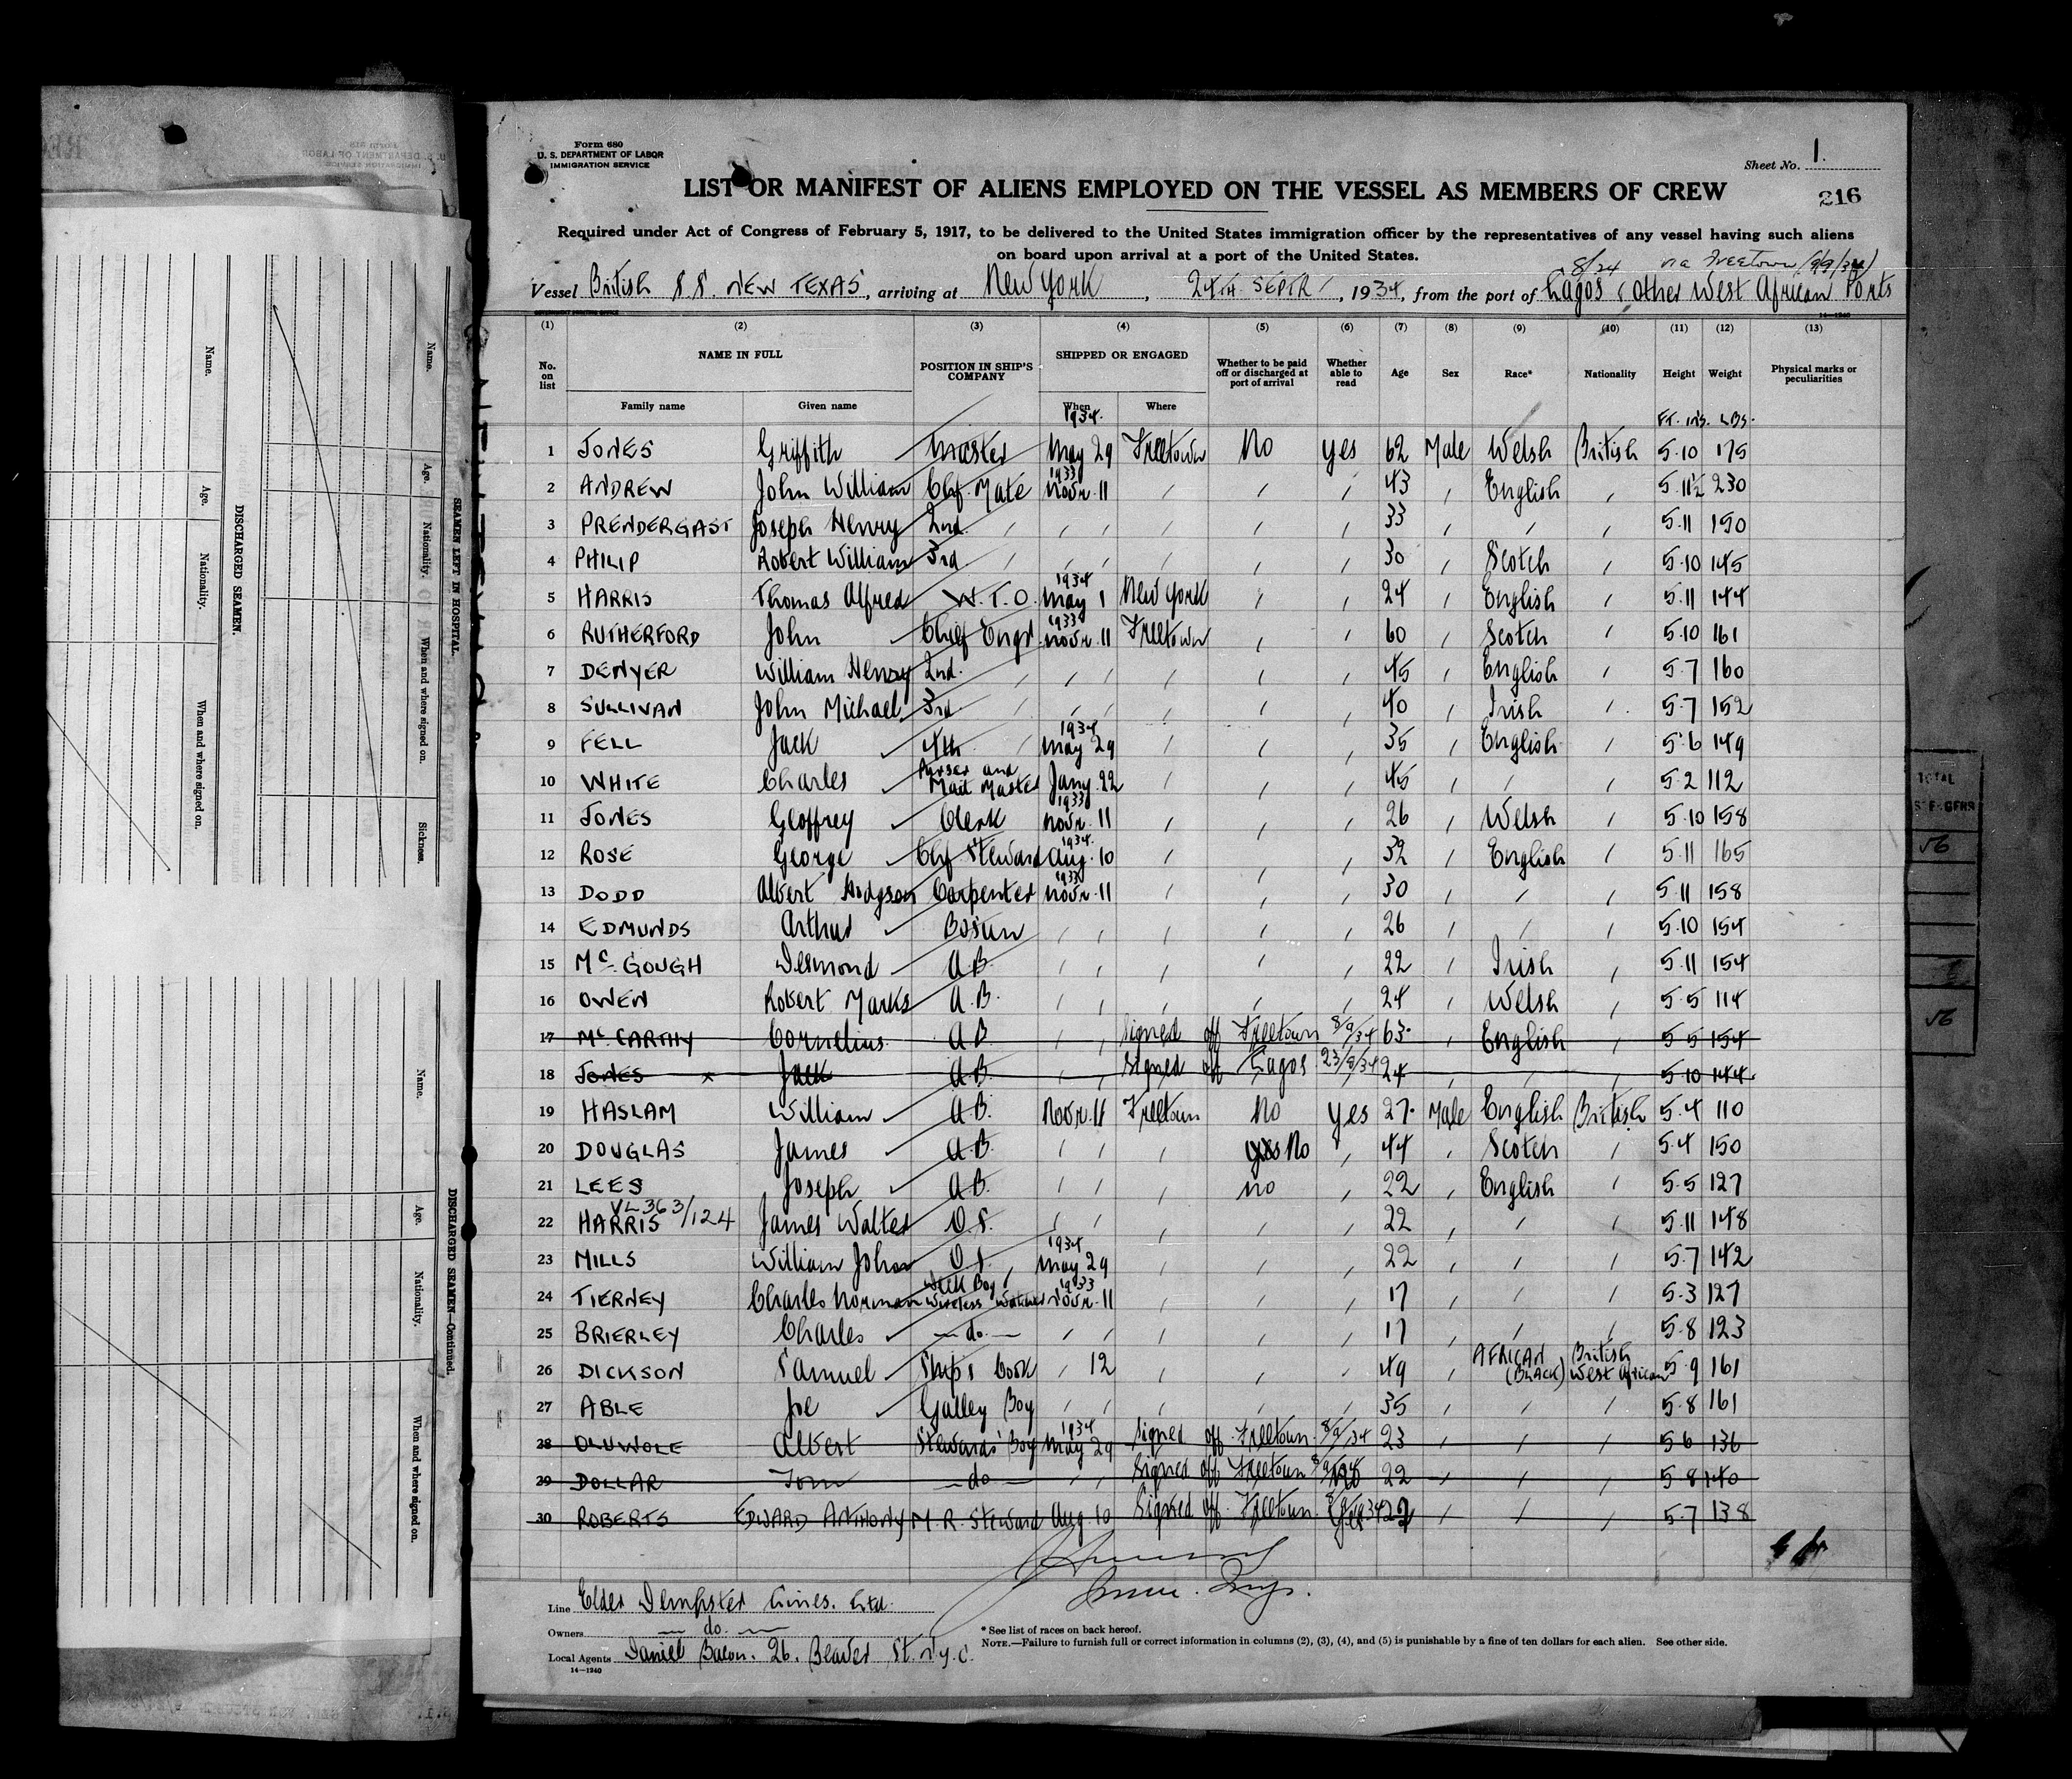 Form 680
U. S. DEPARTMENT OF LABOR
IMMIGRATION SERVICE
Sheet No. 1.
LIST OR MANIFEST OF ALIENS EMPLOYED ON THE VESSEL AS MEMBERS OF CREW
216
Required under Act of Congress of February 5, 1917, to be delivered to the United States immigration officer by the representatives of any vessel having such aliens
on board upon arrival at a port of the United States.
8/24 via Freetown (9/9/34)
Vessel British S.S. NEW TEXAS, arriving at New York, 24TH SEPTR, 1934, from the port of Lagos & other West African Ports
14—1240
(1) (2) (3) (4) (5) (6) (7) (8) (9) (10) (11) (12) (13)
No. on list NAME IN FULL POSITION IN SHIP'S COMPANY SHIPPED OR ENGAGED Whether to be paid off or discharged at port of arrival Whether able to read Age Sex Race* Nationality Height Weight Physical marks or peculiarities
Family name Given name When Where
1934. FT. INS. LBS.
1 JONES Griffith Master May 29 Freetown No Yes 62 Male Welsh British 5.10 175
2 ANDREW John William Chf. Mate 1933 Novr. 11 43 English 5.11½ 230
3 PRENDERGAST Joseph Henry 2nd 33 5.11 190
4 PHILIP Robert William 3rd 30 Scotch 5.10 145
5 HARRIS Thomas Alfred W.T.O. 1934 May 1 New York 24 English 5.11 144
6 RUTHERFORD John Chief Engr 1933 Novr. 11 Freetown 60 Scotch 5.10 161
7 DENYER William Henry 2nd. 45 English 5.7 160
8 SULLIVAN John Michael 3rd 40 Irish 5.7 152
9 FELL Jack 4th 1934 May 29 35 English 5.6 149
10 WHITE Charles Purser and Mail Master Jany. 22 45 5.2 112
11 JONES Geoffrey Clerk 1933 Novr. 11 26 Welsh 5.10 158
12 ROSE George Chf Steward 1934. Aug. 10 32 English 5.11 165
13 DODD Albert Hodgson Carpenter 1933 Novr. 11 30 5.11 158
14 EDMUNDS Arthur Bosun 26 5.10 154
15 Mc. GOUGH Desmond A.B. 22 Irish 5.11 154
16 OWEN Robert Marks A.B. 24 Welsh 5.5 114
17 Mc. CARTHY Cornelius A.B. Signed off Freetown 8/9/34 63 English 5 5 154
18 JONES x Jack A.B. Signed off Lagos 23/8/34 24 5.10 144
19 HASLAM William A.B. Novr. 11 Freetown No Yes 27 Male English British 5.4 110
20 DOUGLAS James A.B. yes No 44 Scotch 5.4 150
21 LEES Joseph A.B. no 22 English 5.5 127
VL 363/124
22 HARRIS James Walter O.S. 22 5.11 148
23 MILLS William John O.S. 1934 May 29 22 5.7 142
24 TIERNEY Charles Norman Deck Boy & Wireless Watcher 1933 Novr. 11 17 5.3 127
25 BRIERLEY Charles —do.— 17 5.8 123
26 DICKSON Samuel Ship's Cook 12 49 AFRICAN (BLACK) British West African 5.9 161
27 ABLE Joe Galley Boy 35 5.8 161
28 OLUWOLE Albert Stewards' Boy 1934 May 29 Signed off Freetown 8/9/34 23 5 6 136
29 DOLLAR Tom —do— Signed off Freetown 22 5 8 140
30 ROBERTS EDWARD ANTHONY M.R. Steward Aug 10 Signed off Freetown 22 5.7 138
Line Elder Dempster Lines. Ltd.
Owners — do. —
Local Agents Daniel Bacon. 26. Beaver St. N.Y.C.
14—1240
* See list of races on back hereof.
NOTE.—Failure to furnish full or correct information in columns (2), (3), (4), and (5) is punishable by a fine of ten dollars for each alien. See other side.
SEAMEN LEFT IN HOSPITAL.
Name. Age. Nationality. When and where signed on. Sickness.
DISCHARGED SEAMEN.
Name. Age. Nationality. When and where signed on.
DISCHARGED SEAMEN—Continued.
Name. Age. Nationality. When and where signed on.
TOTAL
56
56